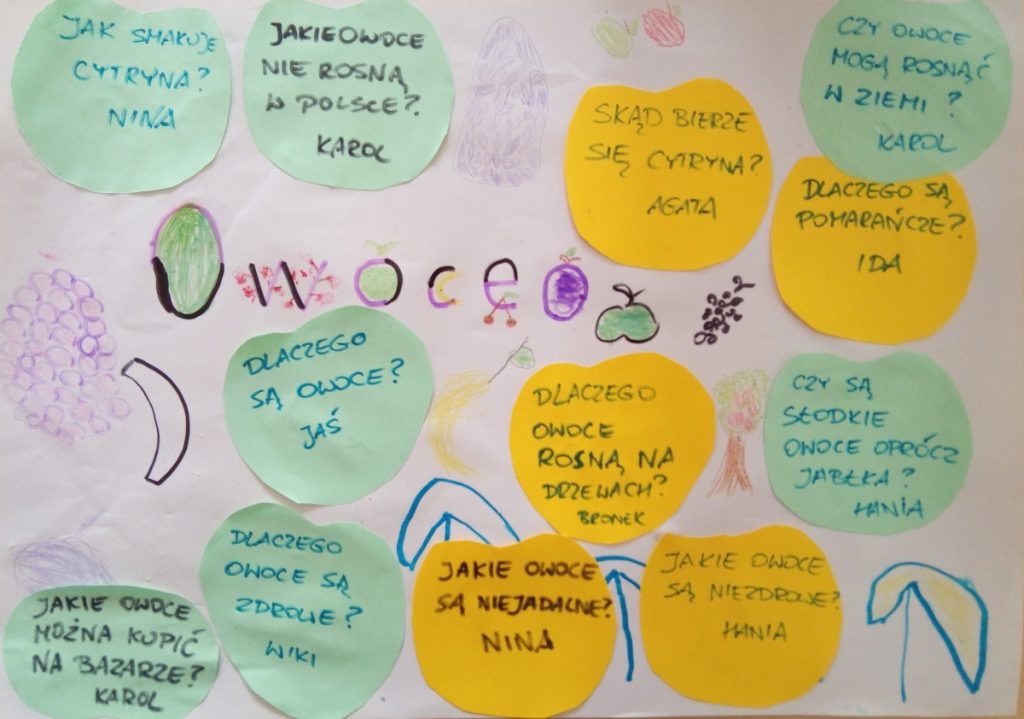 JAK SMAKUJE
CYTRYNA?
NINA
JAKIE OWOCE
NIE ROSNĄ
W POLSCE?
KAROL
SKĄD BIERZE
SIĘ CYTRYNA?
AGATA
CZY OWOCE
MOGĄ ROSNĄĆ
W ZIEMI?
KAROL
DLACZEGO SĄ
POMARAŃCZE?
IDA
OWOCE
DLACZEGO
SĄ OWOCE?
JAŚ
DLACZEGO
OWOCE
ROSNĄ NA
DRZEWACH?
BRONEK
CZY SĄ
SŁODKIE
OWOCE OPRÓCZ
JABŁKA?
HANIA
JAKIE OWOCE
MOŻNA KUPIĆ
NA BAZARZE?
KAROL
DLACZEGO
OWOCE SĄ
ZDROWE?
WIKI
JAKIE OWOCE
SĄ NIEJADALNE?
NINA
JAKIE OWOCE
SĄ NIEZDROWE?
HANIA